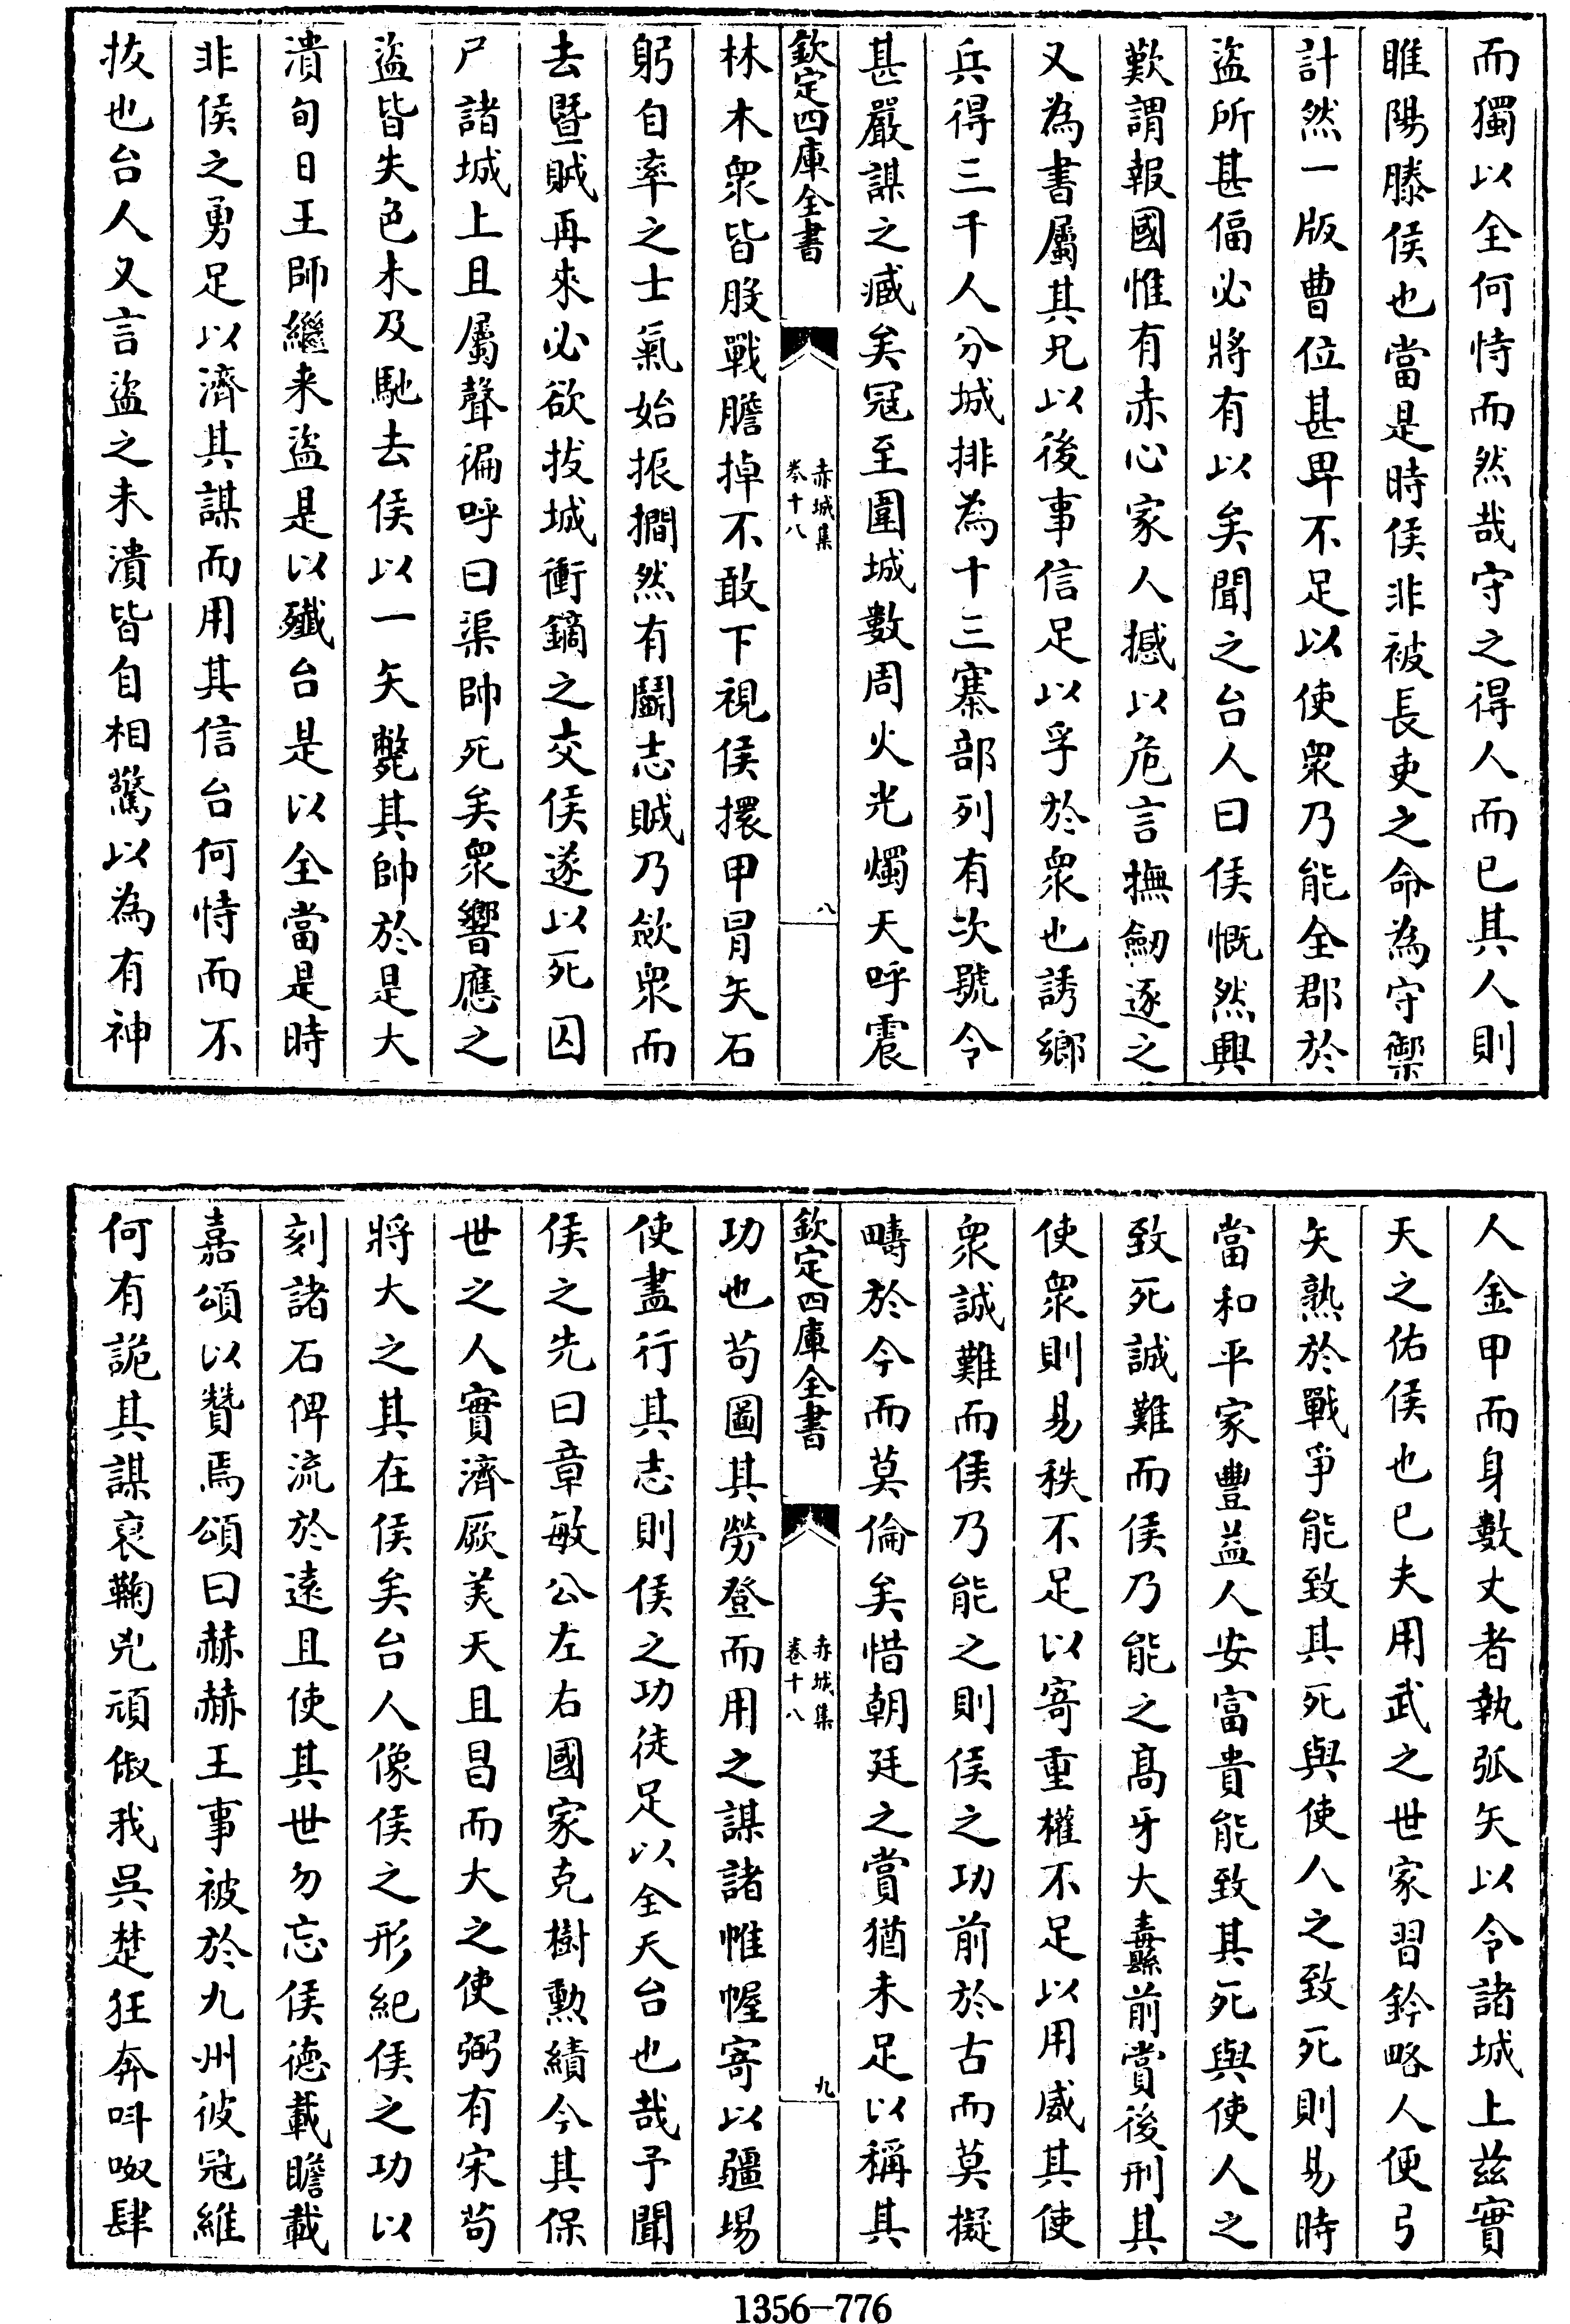 而獨以全何恃而然哉守之得人而已其人則
睢陽滕侯也當是時侯非被長吏之命為守禦
計然一版曹位甚卑不足以使衆乃能全郡於
盜所甚偪必將有以矣聞之台人曰侯慨然興
歎謂報國惟有赤心家人撼以危言撫劒逐之
又為書屬其兄以後事信足以孚於衆也誘鄉
兵得三千人分城排為十三寨部列有次號令
甚嚴謀之臧矣冦至圍城數周火光燭天呼震
欽定四庫全書
赤城集
卷十八
八
林木衆皆股戰膽掉不敢下視侯擐甲冒矢石
躬自率之士氣始振撊然有鬭志賊乃歛衆而
去暨賊再來必欲拔城衝鏑之交侯遂以死囚
尸諸城上且屬聲徧呼曰渠帥死矣衆響應之
盜皆失色未及馳去侯以一矢斃其帥於是大
潰旬日王師繼来盜是以殱台是以全當是時
非侯之勇足以濟其謀而用其信台何恃而不
拔也台人又言盜之未潰皆自相驚以為有神
人金甲而身數丈者執弧矢以令諸城上兹實
天之佑侯也已夫用武之世家習鈐略人便弓
矢熟於戰爭能致其死與使人之致死則易時
當和平家豐益人安富貴能致其死與使人之
致死誠難而侯乃能之髙牙大纛前賞後刑其
使衆則易秩不足以寄重權不足以用威其使
衆誠難而侯乃能之則侯之功前於古而莫擬
疇於今而莫倫矣惜朝廷之賞猶未足以稱其
欽定四庫全書
赤城集
卷十八
九
功也茍圖其勞登而用之謀諸帷幄寄以疆埸
使盡行其志則侯之功徒足以全天台也哉予聞
侯之先曰章敏公左右國家克樹勲績今其保
世之人實濟厥美天且昌而大之使弼有宋茍
將大之其在侯矣台人像侯之形紀侯之功以
刻諸石俾流於逺且使其世勿忘侯徳載瞻載
嘉頌以贊焉頌曰赫赫王事被於九州彼冦維
何有詭其謀裒鞠兇頑俶我吳楚狂奔呌呶肆
1356-776